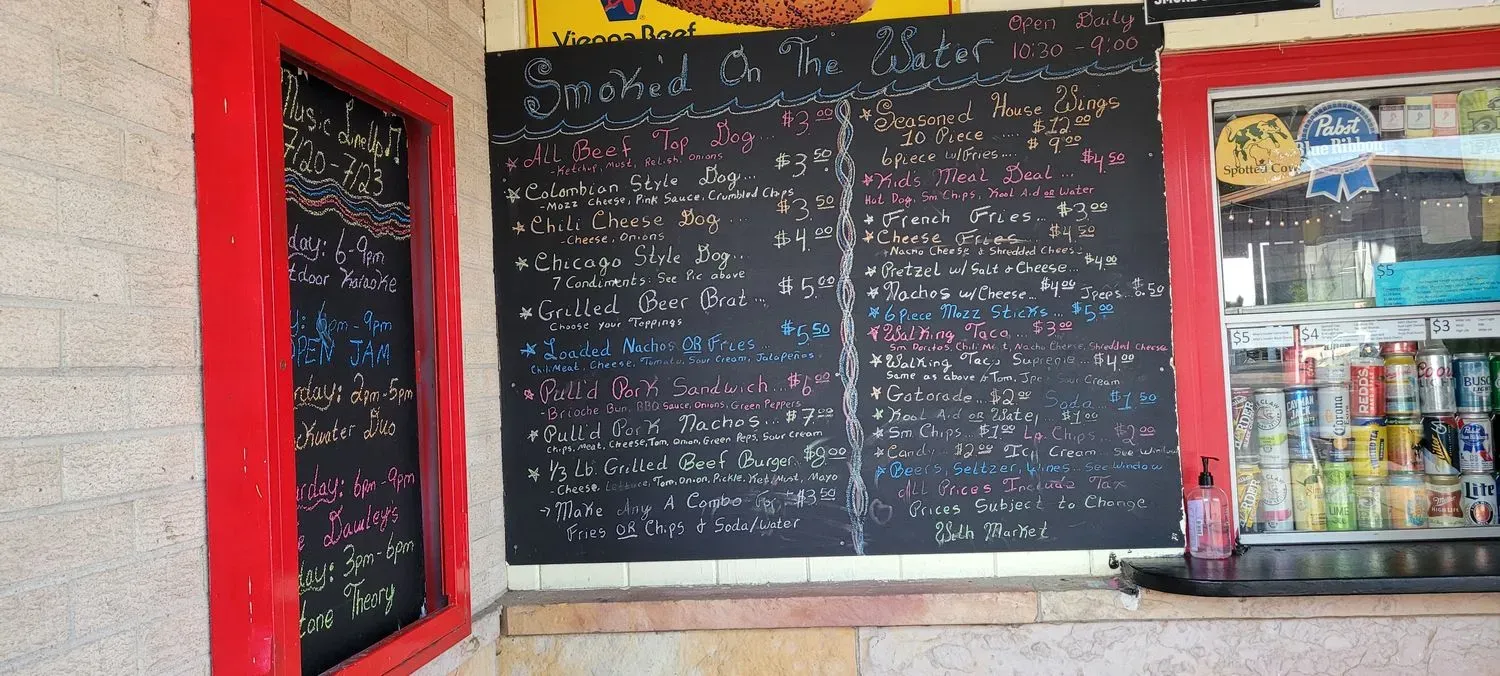 Vienna Beef
Smok'd On The Water
Open Daily
10:30 - 9:00
Music LineUp
7/20 - 7/23
day: 6-9pm
tdoor Karaoke
y: 6pm - 9pm
PEN JAM
urday: 2pm-5pm
ckwater Duo
urday: 6pm-9pm
e Dawley's
day: 3pm-6pm
tone Theory
All Beef Top Dog... $3.00
-Ketchup, Must, Relish, Onions
Colombian Style Dog... $3.50
-Mozz Cheese, Pink Sauce, Crumbled Chips
Chili Cheese Dog ... $3.50
-Cheese, Onions
Chicago Style Dog... $4.00
7 Condiments: See Pic above
Grilled Beer Brat ... $5.00
Choose your Toppings
Loaded Nachos OR Fries $5.50
Chili Meat, Cheese, Tomato, Sour Cream, Jalapeños
Pull'd Pork Sandwich... $6.00
-Brioche Bun, BBQ Sauce, Onions, Green Peppers
Pull'd Pork Nachos... $7.00
Chips, Meat, Cheese, Tom, Onion, Green Peps, Sour Cream
1/3 Lb. Grilled Beef Burger
-Cheese, Lettuce, Tom, Onion, Pickle, Ket, Must, Mayo
→ Make Any A Combo For + $3.50
Fries OR Chips & Soda/Water
Seasoned House Wings
10 Piece .... $12.00
6piece w/Fries... $9.00
Kid's Meal Deal... $4.50
Hot Dog, Sm Chips, Kool Aid or Water
French Fries... $3.00
Cheese Fries... $4.50
Nacho Cheese & Shredded Cheese
Pretzel w/ Salt & Cheese... $4.00
Nachos w/Cheese... $4.00 Jpeps...$.50
6 Piece Mozz Sticks... $5.00
Walking Taco... $3.00
Sm Doritos, Chili Meat, Nacho Cheese, Shredded Cheese
Walking Taco Supreme... $4.00
Same as above + Tom, Jpe Sour Cream
Gatorade... $2.00 Soda... $1.50
Kool Aid OR Water $1.00
Sm Chips... $1.00 Lg Chips... $2.00
Candy $2.00 Ice Cream... See Window
Beers, Seltzer, Wines... See Window
All Prices Include Tax
Prices Subject to Change
With Market
Spotted Cow
Pabst
Blue Ribbon
$5
$5
$4
$3
REDD'S
Corona
Coors
BUSC
LIME
Miller
HIGH LIFE
Lite